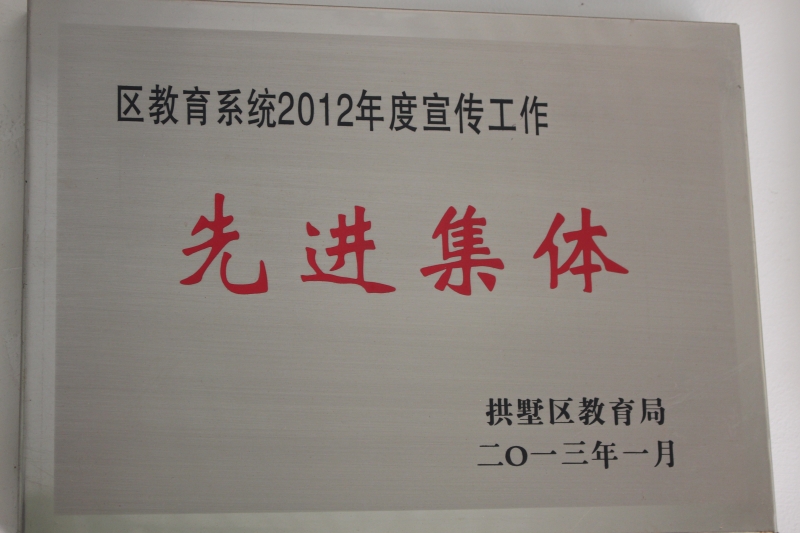 区教育系统2012年度宣传工作
先进集体
拱墅区教育局
二〇一三年一月